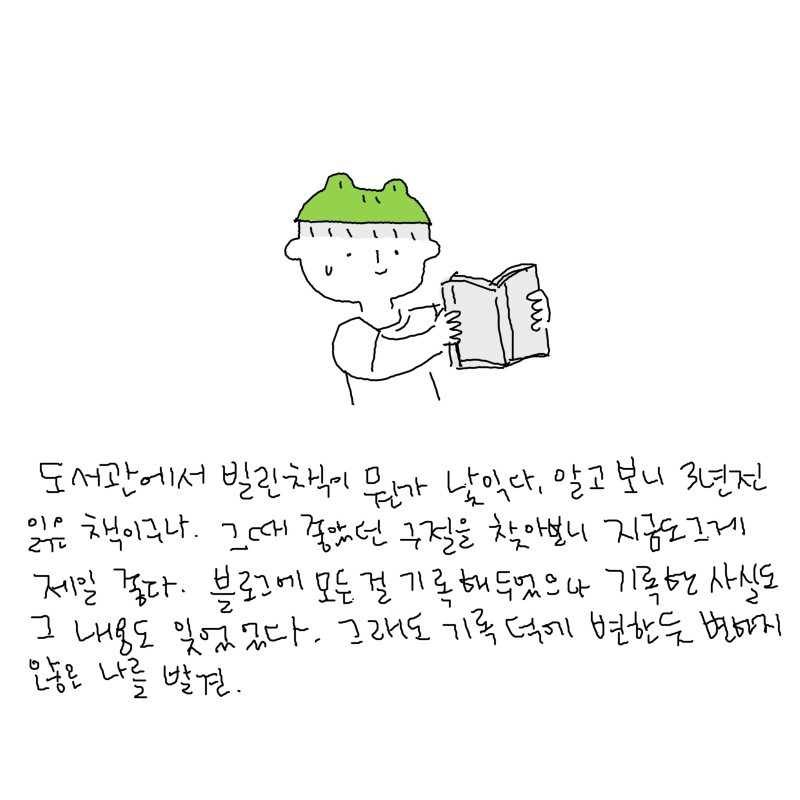 도서관에서 빌린책이 뭔가 낯익다. 알고 보니 3년전
읽은 책이구나. 그때 좋았던 구절을 찾아보니 지금도그게
제일 좋다. 블로그에 모든걸 기록해두었으나 기록한 사실도
그 내용도 잊었었다. 그래도 기록 덕에 변한듯 변하지
않은 나를 발견.